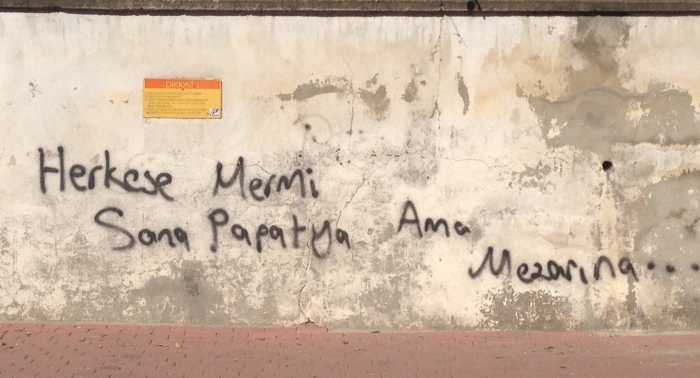 DİKKAT !
Herkese Mermi
Sana Papatya Ama
Mezarına...